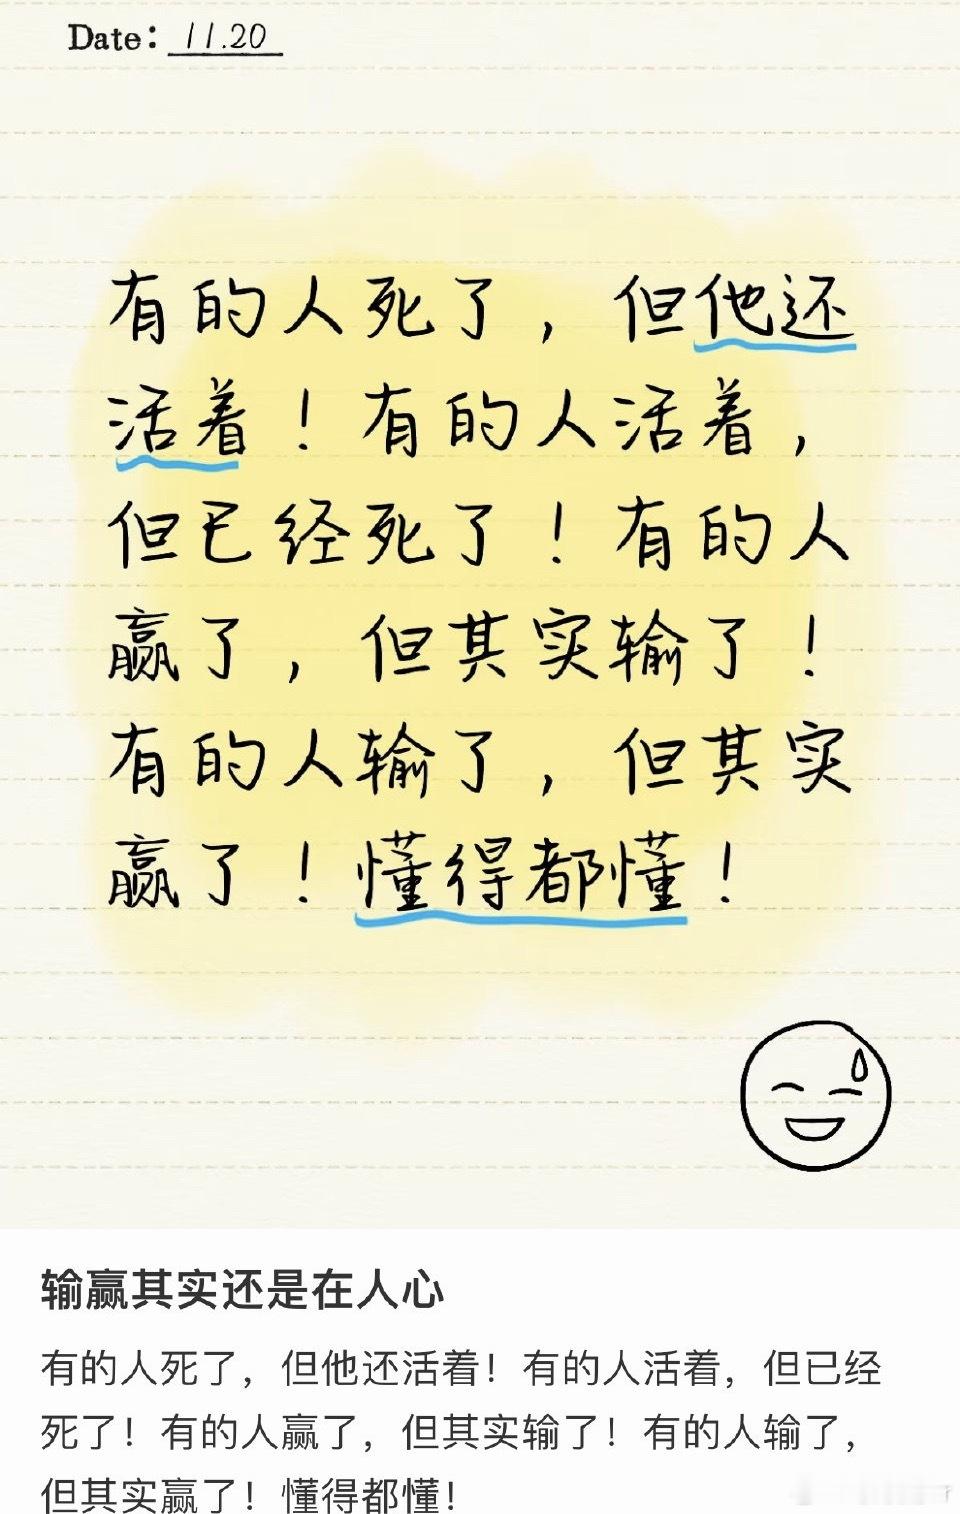 Date: 11.20
有的人死了，但他还
活着！有的人活着，
但已经死了！有的人
赢了，但其实输了！
有的人输了，但其实
赢了！懂得都懂！
输赢其实还是在人心
有的人死了，但他还活着！有的人活着，但已经
死了！有的人赢了，但其实输了！有的人输了，
但其实赢了！懂得都懂！